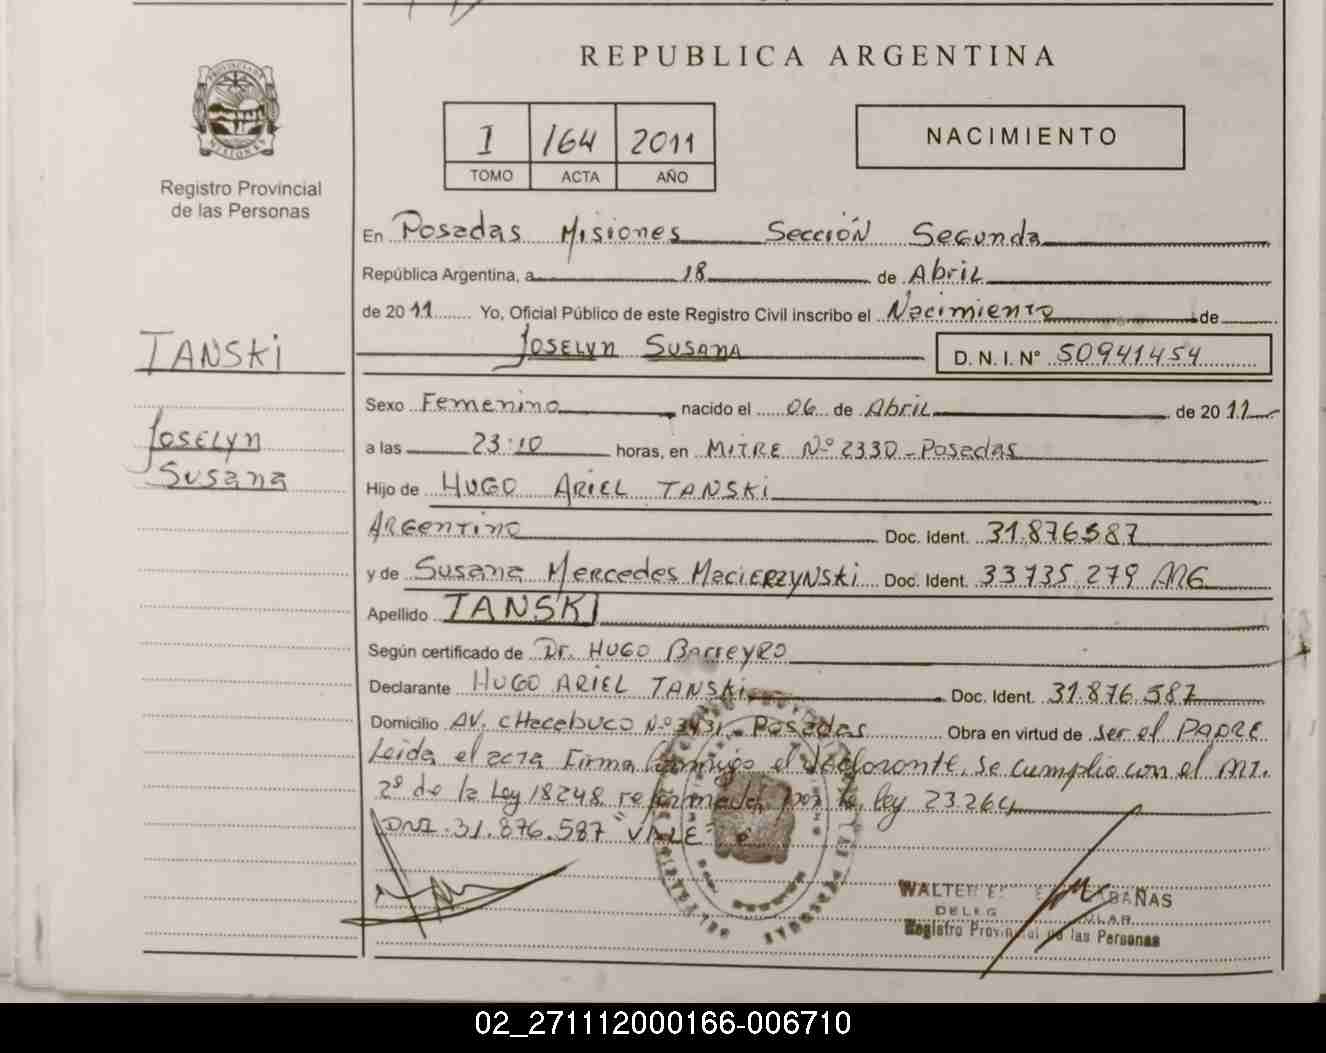 REPUBLICA ARGENTINA
PROVINCIA DE MISIONES
Registro Provincial
de las Personas
I 164 2011
TOMO ACTA AÑO
NACIMIENTO
En Posadas Misiones Sección Segunda
República Argentina, a 18 de Abril
de 2011 Yo, Oficial Público de este Registro Civil inscribo el Nacimiento de
Joselyn Susana D. N. I. Nº 50941454
TANSKi
Joselyn
Susana
Sexo Femenino nacido el 06 de Abril de 2011
a las 23:10 horas, en MITRE Nº 2330 - Posadas
Hijo de HUGO ARIEL TANSKi
ARGENTINO Doc. Ident. 31.876587
y de Susana Mercedes MaciERZYNSki Doc. Ident. 33735.279 ARG
Apellido TANSKI
Según certificado de Dr. HUGO BarreyRO
Declarante HUGO ARIEL TANSKi Doc. Ident. 31.876.587
Domicilio AV. CHacabuco Nº 3431 - Posadas Obra en virtud de ser el PADRE
Leida el acta Firma conmigo el declarante. Se cumplio con el Art.
2º de la Ley 18248 reformada por la ley 23.264
DNI. 31.876.587 "VALE"
WALTER CABAÑAS
Registro Provincial de las Personas
02_271112000166-006710